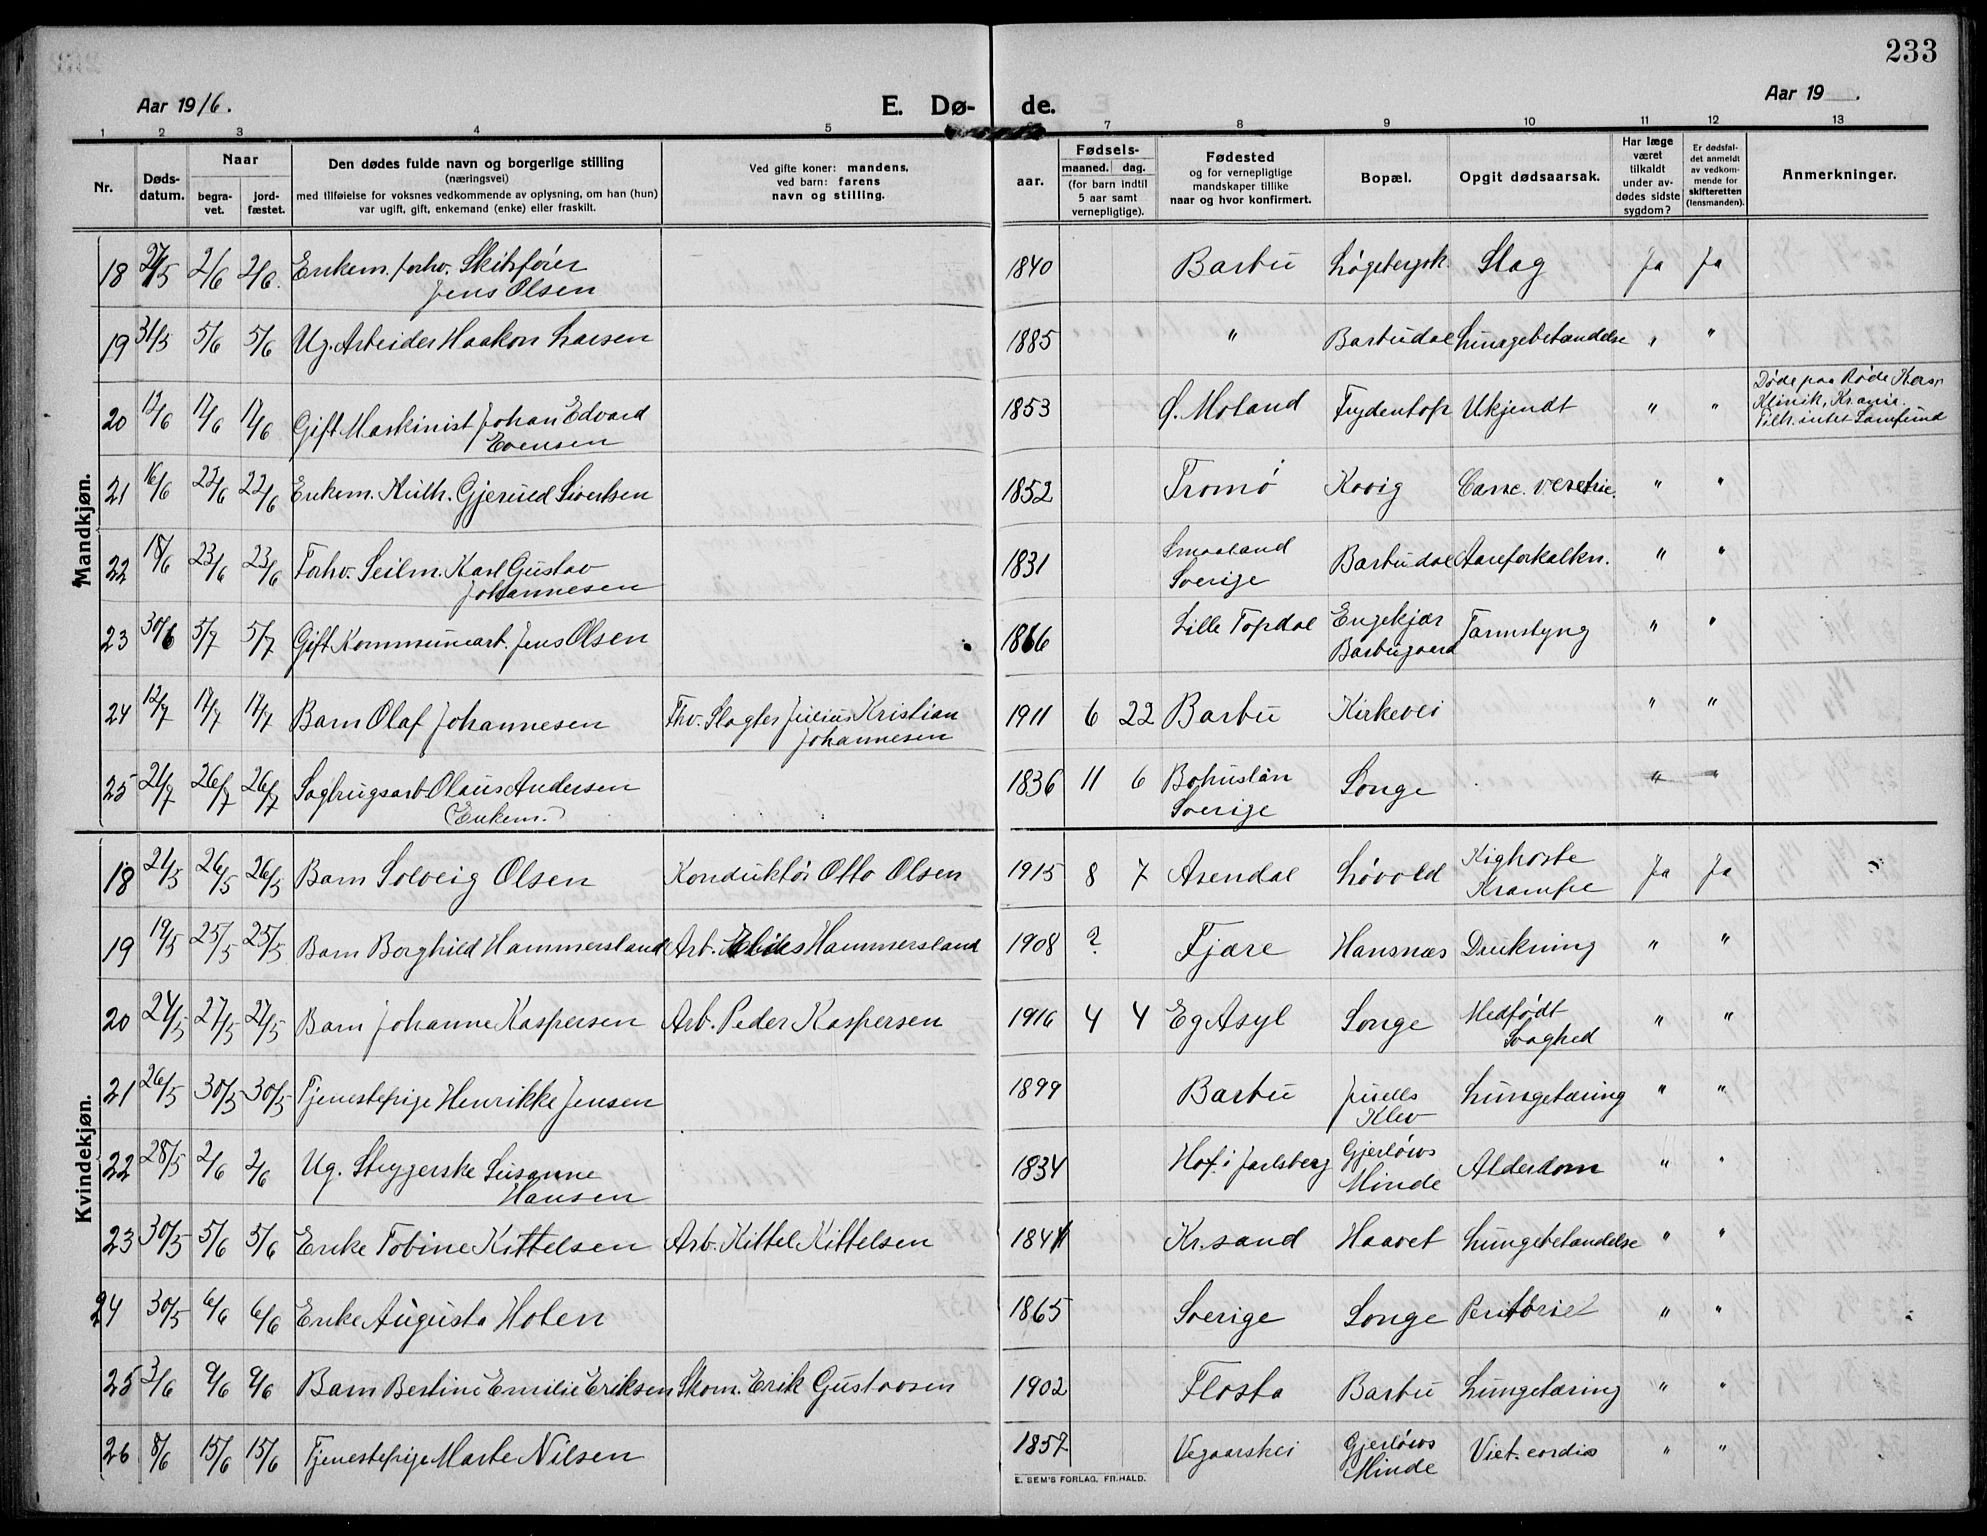 233
Aar 1916.
E. Dø- de.
Aar 19 .
1 2 3 4 5 7 8 9 10 11 12 13
Nr. Døds-datum. Naar begra-vet. jord-fæstet. Den dødes fulde navn og borgerlige stilling (næringsvei) med tilføielse for voksnes vedkommende av oplysning, om han (hun) var ugift, gift, enkemand (enke) eller fraskilt. Ved gifte koner: mandens, ved barn: farens navn og stilling. aar. Fødsels- maaned. dag. (for barn indtil 5 aar samt vernepligtige). Fødested og for vernepligtige mandskaper tillike naar og hvor konfirmert. Bopæl. Opgit dødsaarsak. Har læge været tilkaldt under av-dødes sidste sygdom? Er dødsfal-det anmeldt av vedkom-mende for skifteretten (lensmanden). Anmerkninger.
Mandkjøn.
18 27/5 2/6 2/6. Enkem. forhv. Skibsfører Jens Olsen 1840 Barbu Løgebergsk. Slag Ja Ja
19 31/5 5/6 5/6 Ug. Arbeider Haakon Larsen 1885 " Barbudal Lungebetændelse " "
20 12/6 17/6 17/6 Gift Maskinist Johan Edvard Evensen 1853 Ø. Moland Frydentop Ukjendt " " Døde paa Røde Kors Klinik, Kr.ania. Tilh. intet Samfund
21 16/6 22/6 22/6 Enkem. Gjerued Sivertsen 1852 Tromø Kovig Canc. " "
22 18/6 23/6 23/6 Forhv. Seilm. Karl Gustav Johannesen 1831 Smaaland Sverige Barbudal Aareforkalkn. " "
23 30/6 5/7 5/7 Gift Kommunearb. Jens Olsen 1866 Lille Topdal Engekjær Barbugaard Tarmslyng " "
24 12/7 17/7 17/7 Barn Olaf Johannesen Fhv. Slagter Julius Kristian Johannesen 1911 6 22 Barbu Kirkevei " "
25 21/7 26/7 26/7 Sagbrugsarb Olaus Andersen (Enkem.) 1836 11 6 Bohuslän Sverige Songe " "
Kvindekjøn.
18 21/5 26/5 26/5 Barn Solveig Olsen Konduktör Otto Olsen 1915 8 7 Arendal Løvold Kighoste Krampe Ja Ja
19 19/5 25/5 25/5 Barn Borghild Hammersland Arb. Elias Hammersland 1908 ? Fjære Hansnæs Drukning " "
20 24/5 27/5 27/5 Barn Johanne Kaspersen Arb. Peder Kaspersen 1916 4 4 Eg Asyl Songe Medfødt Svaghed " "
21 26/5 30/5 30/5 Tjenestepige Henrikke Jensen 1899 Barbu Juells Klev Lungetæring " "
22 28/5 2/6 2/6 Ug. Strygerske Susanne Hansen 1834 Hof i Jarlsberg Gjerløws Minde Alderdom " "
23 30/5 5/6 5/6 Enke Tobine Kittelsen Arb. Kittel Kittelsen 1844 Kr.sand Haavet Lungebetændelse " "
24 30/5 6/6 6/6 Enke Augusta Holen 1865 Sverige Songe " "
25 3/6 9/6 9/6 Barn Bertine Emilie Eriksen Skom. Erik Gustavsen 1902 Flosta Barbu Lungetæring " "
26 8/6 15/6 15/6 Tjenestepige Marte Nilsen 1857 Vegaarshei Gjerløws Minde Vict. cordis " "
E. SEM'S FORLAG, FR.HALD.